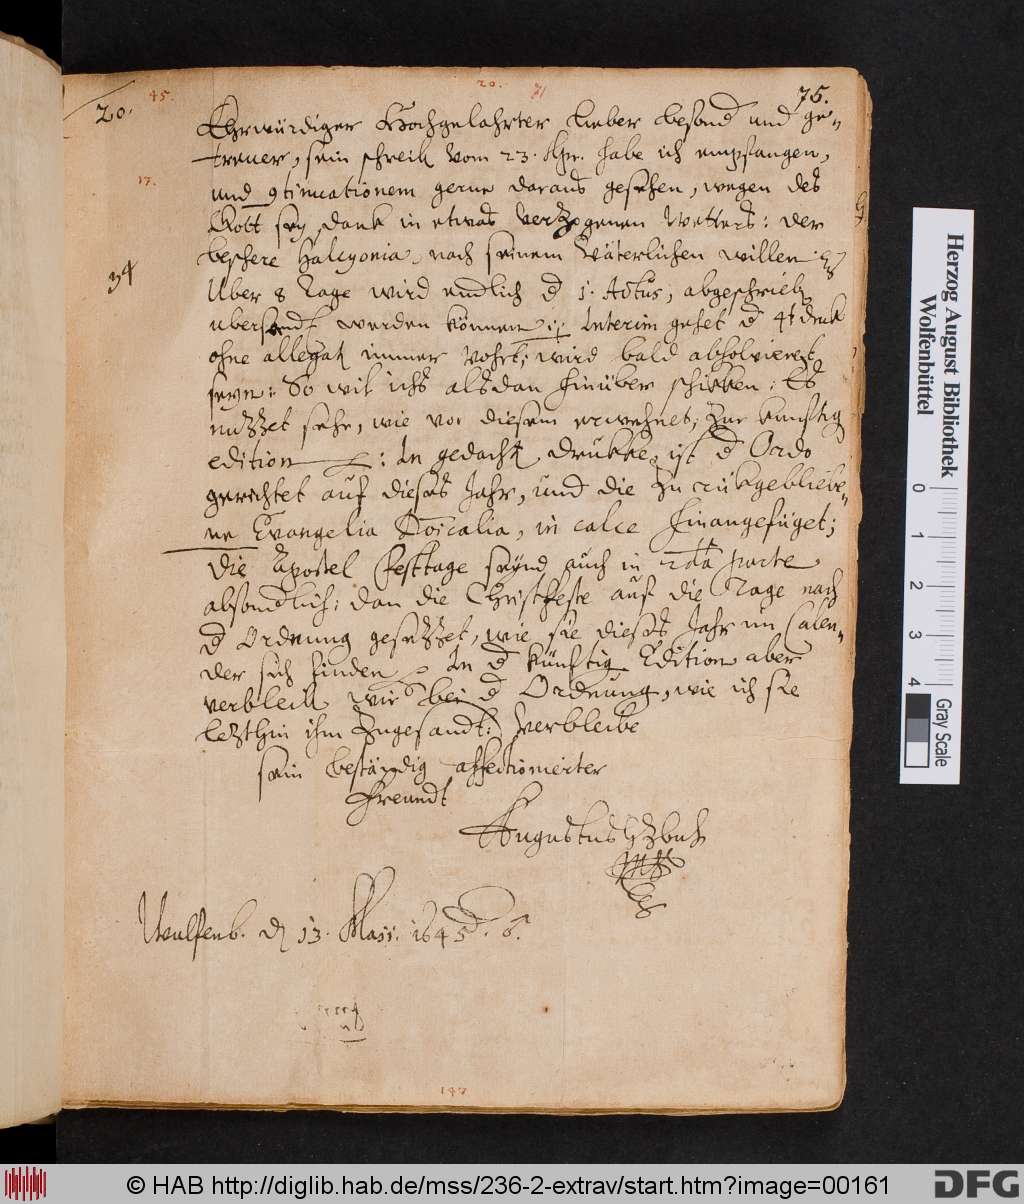 20.
45.
20.
71
75.
Ehrwürdiger Hochgelahrter lieber besond und ge-
treuer, sein schreib vom 23. Apr. habe ich empfangen,
17.
und 9tinuationem gerne daraus gesehen, wegen des
Gott sey dank in etwas verzogenen Wetters: der
beschere Halcyonia, nach seinem Väterlichen willen
34
Uber 8 Tage wird endlich d 1. Actus, abgeschrieb
ubersandt werden können Interim gehet d 4t druk
ohne allegat immer vohrt; wird bald absolvieret
seyn: So wil ichs alsdan hinüber schikken: Es
nuzzet sehr, wie vor diesem erwehnet, zur kunftig
edition : In gedacht drukke, ist d Ordo
gerichtet auf dieses Jahr, und die zu rükgebliebe-
ne Evangelia in calce hinangefüget;
die Apostel festtage seynd auch in 2da parte
absondlich: dan die Christfeste auf die Tage nach
d Ordnung gesezzet, wie sie dieses Jahr im Calen-
der sich finden In d künftig Edition aber
verbleib wir bei d Ordnung, wie ich sie
lezthin ihm zugesandt: Verbleibe
sein beständig affectionierter
Freundt
Augustus HzBuL
Wulfenb. d 13. Maii. 1645. 6.
187
Herzog August Bibliothek
Wolfenbüttel
0 1 2 3 4
Gray Scale
© HAB http://diglib.hab.de/mss/236-2-extrav/start.htm?image=00161
DFG